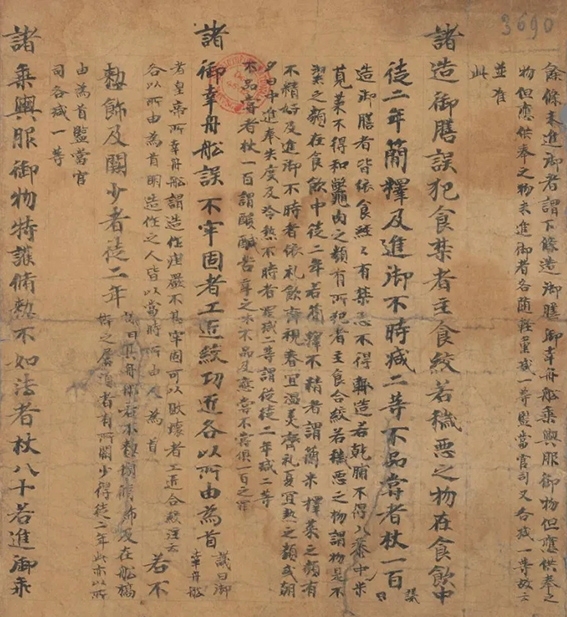 余條未進御者謂下條造御膳御幸舟船乘輿服御物但應供奉之
物但應供奉之物未進御者各隨輕重減一等監當官司又各減一等故云
並准
此
諸造御膳誤犯食禁者主食絞若穢惡之物在食飲中
徒二年簡擇及進御不時減二等不品嘗者杖一百 議曰
造御膳者皆依食經々有禁忌不得輙造若乾脯不得入黍中米
莧菜不得和鼈肉之類有所犯者主食合絞若穢惡之物謂物是不
潔之類在食飲中徒二年若簡擇不精者謂簡米擇菜之類有
不精好及進御不時者依礼飲齊視春宜温羹齊視夏宜熱之類或朝
夕日中進奉失度及冷熱不時者減二等謂從徒二年減二等
不品嘗者杖一百謂酸鹹苦辛之味不品及應嘗不嘗俱一百之罪
諸御幸舟船誤不牢固者工匠絞功匠各以所由為首 議曰御幸舟船
者皇帝所幸舟船謂造作莊嚴不甚牢固可以敗壞者工匠合絞注云
各以所由為首明造作之人皆以當時所由人為首 若不
整飾及闕少者徒二年 議曰其舟船若不整頓修飾及在船篙
棹之屬須者有所闕少得徒二年此亦以所
由為首監當官
司各減一等
諸乘輿服御物持護脩整不如法者杖八十若進御乖
3690